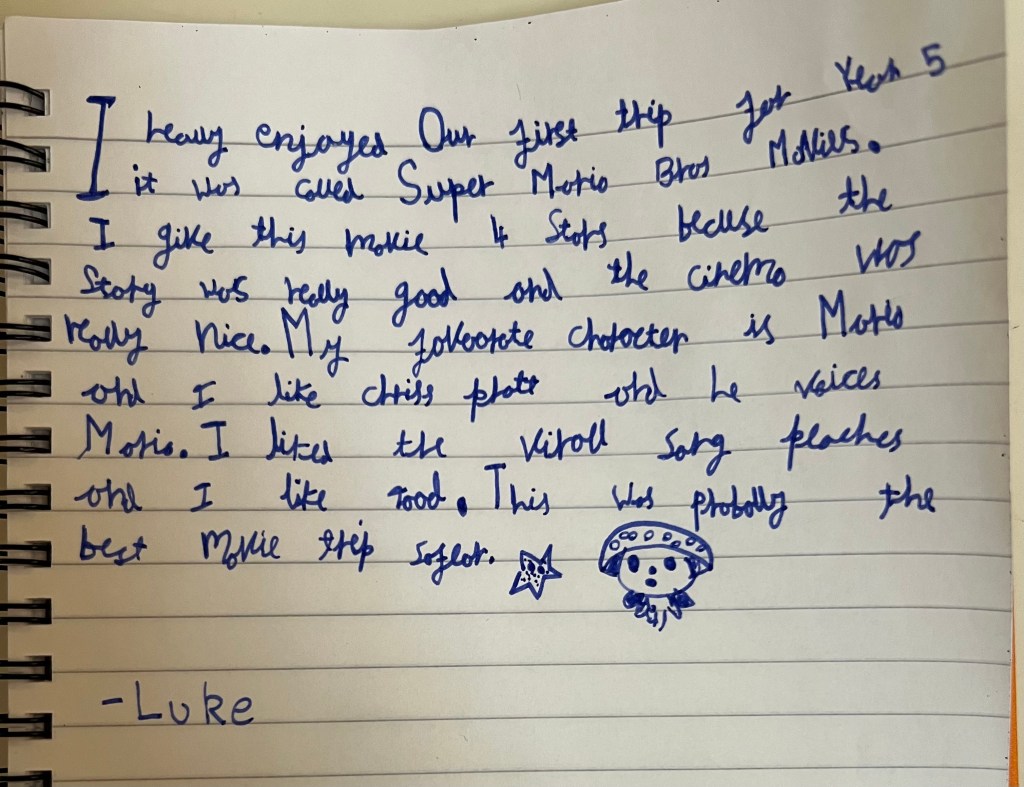 I really enjoyed Our first trip for Year 5
it was called Super Mario Bros Movies.
I give this movie 4 Stars becuse the
Story was really good and the cinema was
really nice. My favoorate character is Mario
and I like chriss pratt and he voices
Mario. I liked the virall song peaches
and I like Toad. This was probally the
best movie trip sofar.
-Luke